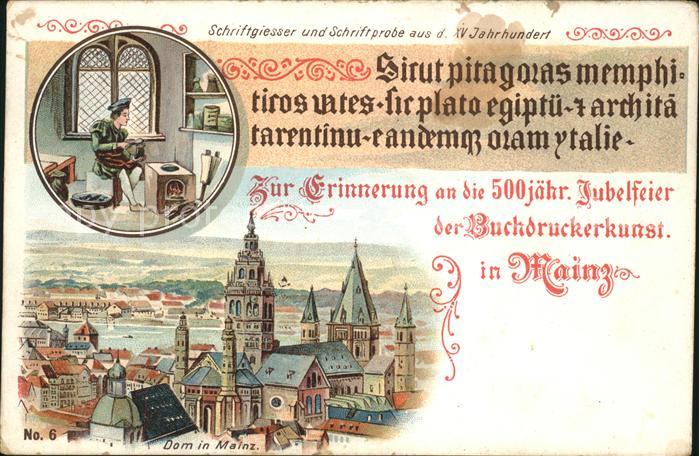 Schriftgiesser und Schriftprobe aus d. XV Jahrhundert
Sicut pitagoras memphi-
ticos vates. sic plato egiptū. ⁊ architā
tarentinu. eandemqꝫ oram ytalie.
Zur Erinnerung an die 500jähr. Jubelfeier
der Buchdruckerkunst.
in Mainz
No. 6
Dom in Mainz.